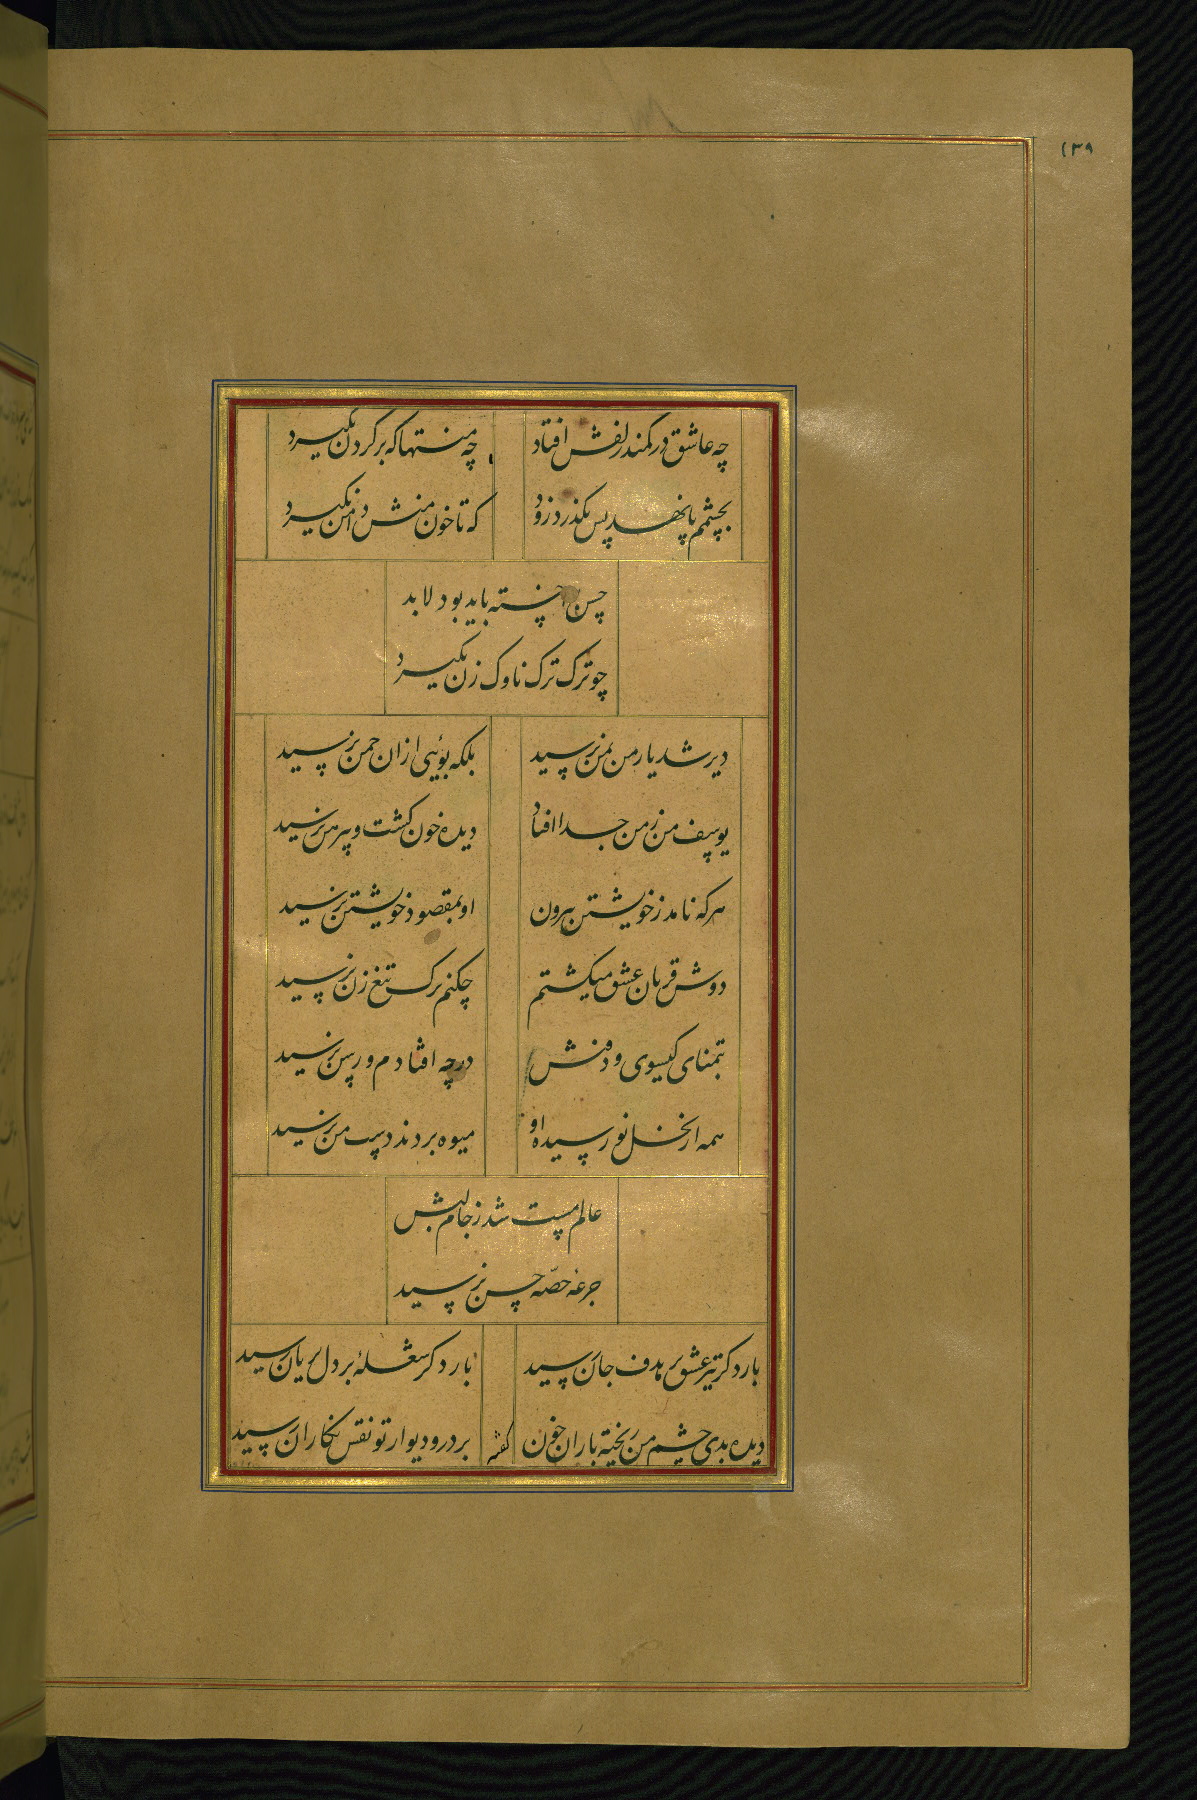 ۱۳۹
چه عاشق در کمند زلفش افتاد چه منتها که بر گردن نگیرد
بچشمم پا نهد پس بگذرد زود که تا خون منش دامن نگیرد
حسن را خسته باید بود لابد
چو ترک ترک ناوک زن نگیرد
دیر شد یار من بمن نرسید بلکه بوئی از ان چمن نرسید
یوسف من ز من جدا افتاد دیده خون کشت و پیرهن نرسید
هر که نامد ز خویشتن بیرون او بمقصود خویشتن نرسید
دوش قربان عشق میکشتم چکنم ترک تیغ زن نرسید
بتمنای کیسوی و ذقنش در چه افتادم و رسن نرسید
همه از نخل نو رسیده او میوه بردند دست من نرسید
عالم مست شد ز جام لبش
جرعه حصه حسن نرسید
بار دکر تیر عشق بر هدف جان رسید بار دکر شعله بر دل بریان رسید
دیده بدی چشم من ریخته باران خون گفته بر در و دیوار تو نقس نکاران رسید